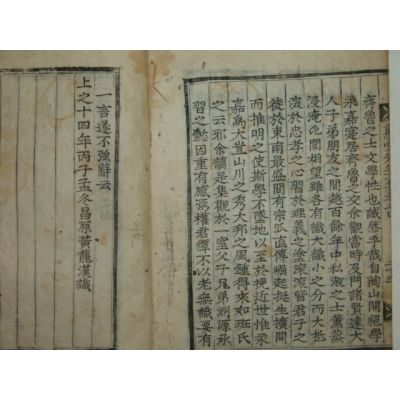 齊魯之士文學性也誠然乎哉自陶山開絶學
永嘉寔居齊魯之交余觀當時及門諸賢達大
人子弟朋友之間越百餘年中私淑之士薰蒸
浸淹比閭相望雖各有識大識小之分而大抵
於忠孝之心習於理義之塗深皆君子之
徒於東南最盛間有宗派直傳崛起挺生擴開
而推明之使斯學不墜地以至於挽近世惟永
嘉爲大豈山川之秀大邦之風鍾得來如班氏
之云邪余讀是集觀於一室父子兄弟淵源承
習之懿因重有感焉權君不以老無識要有
一言遂不強辭云
上之十四年丙子孟冬昌原黃龍漢識